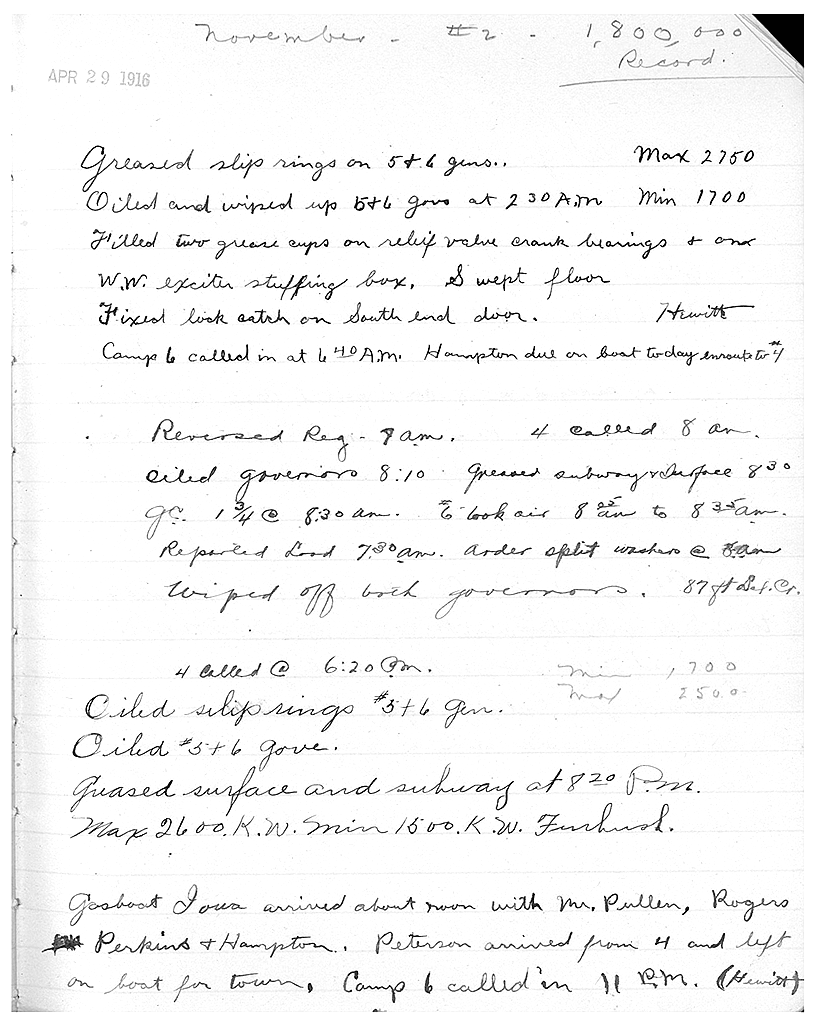 November - #2 - 1,800,000
Record.
APR 29 1916
Greased slip rings on 5+6 gens.. Max 2750
Oiled and wiped up 5+6 govs at 2 30 A.M Min 1700
Filled two grease cups on relief valve crank bearings + one
W.W. exciter stuffing box. Swept floor
Fixed lock catch on South end door. Hewitt
Camp 6 called in at 6 40 A.M. Hampton due on boat today enroute to #4
Reversed Reg - 8 am. 4 called 8 am.
oiled governors 8:10 Greased subway & surface 8 30
G.C. 1 3/4 @ 8:30 am. took air 8 25 am to 8 35 am.
Reported Load 7 30 am. order split washers @ 8 am
Wiped off both governors. 87 ft
4 called @ 6:20 P.m. Min 1,700
Max 2500
Oiled slip rings #5+6 Gen.
Oiled #5+6 Gove.
Greased surface and subway at 8 20 P.m.
Max 2600. K.W. Min 1500. K.W. Furbush.
Gasboat Iowa arrived about noon with Mr. Pullen, Rogers
Perkins + Hampton. Peterson arrived from 4 and left
on boat for town. Camp 6 called in 11 P.M. (Hewitt)